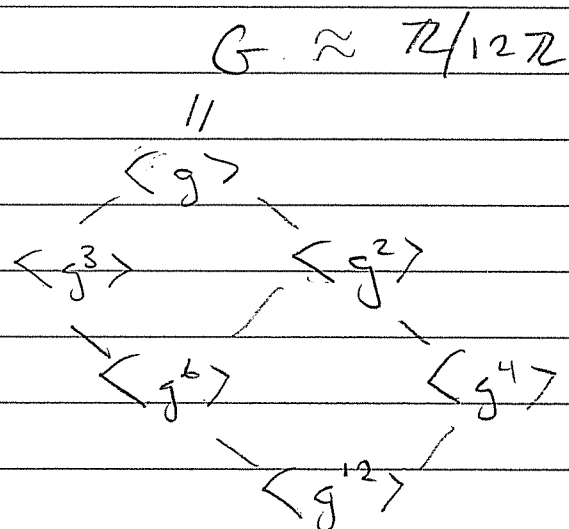 G ≈ ℤ/12ℤ
||
<g>
<g³> <g²>
<g⁶> <g⁴>
<g¹²>